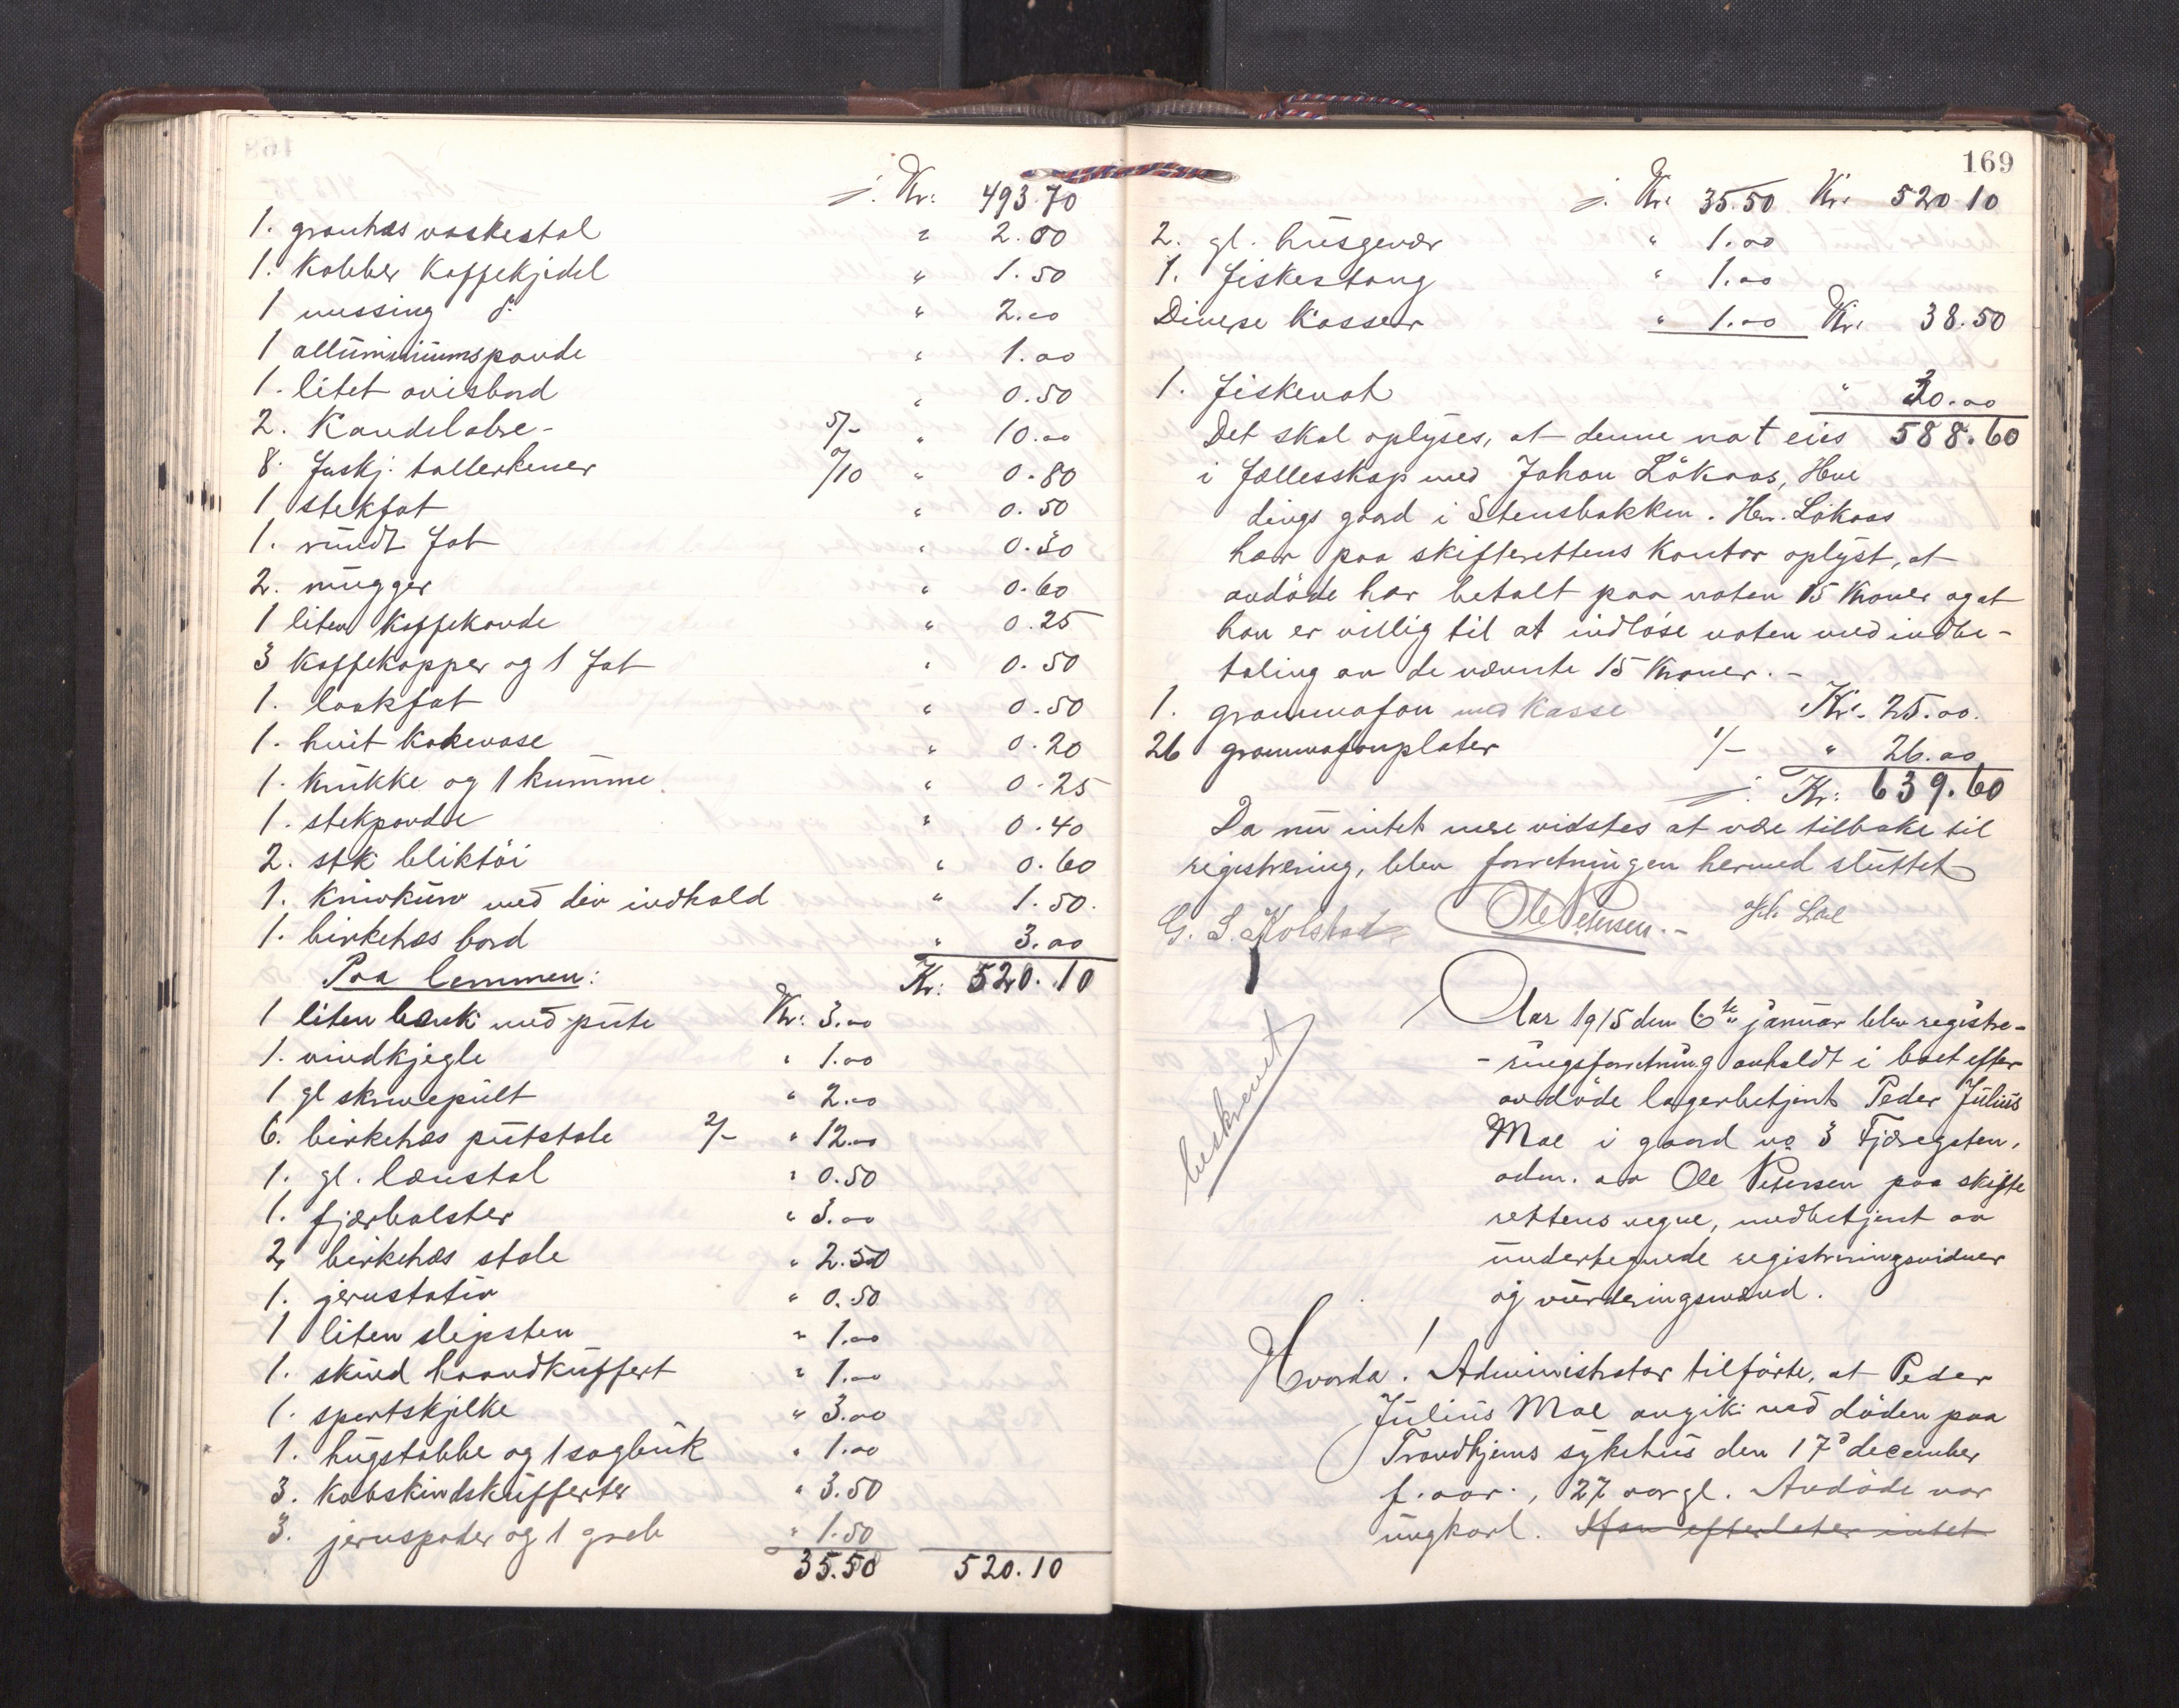 j. Kr: 493.70
1. granhæs vaskestol " 2.00
1. Kobber Kaffekjedel " 1.50
1 messing do " 2.00
1 alluminiumspande " 1.00
1. litet avisbord " 0.50
2. Kandelabre - 5/- " 10.00
8. forskj. tallerkener 0/10 " 0.80
1 stekfat " 0.50
1. rundt fat " 0.30
2. mugger " 0.60
1 liten Kaffekande " 0.25
3 Kaffekopper og 1 fat " 0.50
1. laakfat " 0.50
1. hvit Kakevase " 0.20
1. Krukke og 1 kumme " 0.25
1. stekpande " 0.40
2. stk bliktöi " 0.60
1. Knivkurv med div indhold " 1.50.
1. birkehæs bord " 3.00
Paa lemmen: Kr: 520.10
1 liten bænk med pute Kr: 3.00
1. vindkjegle " 1.00
1 gl skrivepult " 2.00
6. birkehæs putstole 2/- " 12.00
1. gl. lænstol " 0.50
1. fjærbolster " 3.00
2, birkehæs stole " 2.50
1. jernstativ " 0.50
1 liten slipsten " 1.00
1. skind haandkuffert " 1.00
1. sportskjelke " 3.00
1. hugstabbe og 1 sagbuk " 1.00
3. Kobskindskufferter " 3.50
3. jernspader og 1 greb " 1.50
35.50 520.10
169
j. Kr. 35.50 Kr. 520 10
2. gl. husgevær " 1.00
1. fiskestang " 1.00
Diverse Kasser " 1.00 Kr. 38.50
1. fiskenot " 30.00
Det skal oplyses, at denne not eies 588.60
i fællesskap med Johan Lökaas, Hve
dings gaard i Stensbakken. Hr. Lökaas
har paa skifterettens Kontor oplyst, at
avdöde har betalt paa noten 15 Kroner og at
han er villig til at indlöse noten med indbe-
taling av de nævnte 15 Kroner. -
1. grammofon med Kasse Kr. 25.00.
26 grammofonplater 1/- " 26.00
j. Kr: 639.60
Da nu intet mere vidstes at være tilbake til
registrering, blev forretningen hermed sluttet
G. S. Kolstad Ole Petersen. -
beskrevet
Aar 1915 den 6te januar blev registre-
- ringsforretning avholdt i boet efter
avdöde lagerbetjent Peder Julius
Moe i gaard no 3 Fjæregaten,
adm. av Ole Petersen paa skifte
rettens vegne, medbetjent av
undertegnede registreringsvidner
og vurderingsmænd.
Hvorda! Administrator tilförte, at Peder
Julius Moe avgik ved döden paa
Trondhjems sykehus den 17d december
f. aar., 27 aar gl. Avdöde var
ungkarl. Han efterlater intet